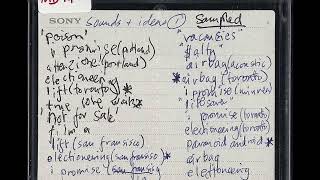 SONY sounds + ideas ① Sampled
'poison'
i promise (portland)
attenzione (portland)
electioneering
lift (toronto) *
true love waits *
'not for sale'
lift (san fransisco)
electioneering (san fransisco) *
i promise (san fransisco)
"vacancies"
airbag (acoustic)
* airbag (toronto)
i promise
lifesaver
promise (toronto)
electioneering (toronto)
paranoid android *
airbag
electioneering